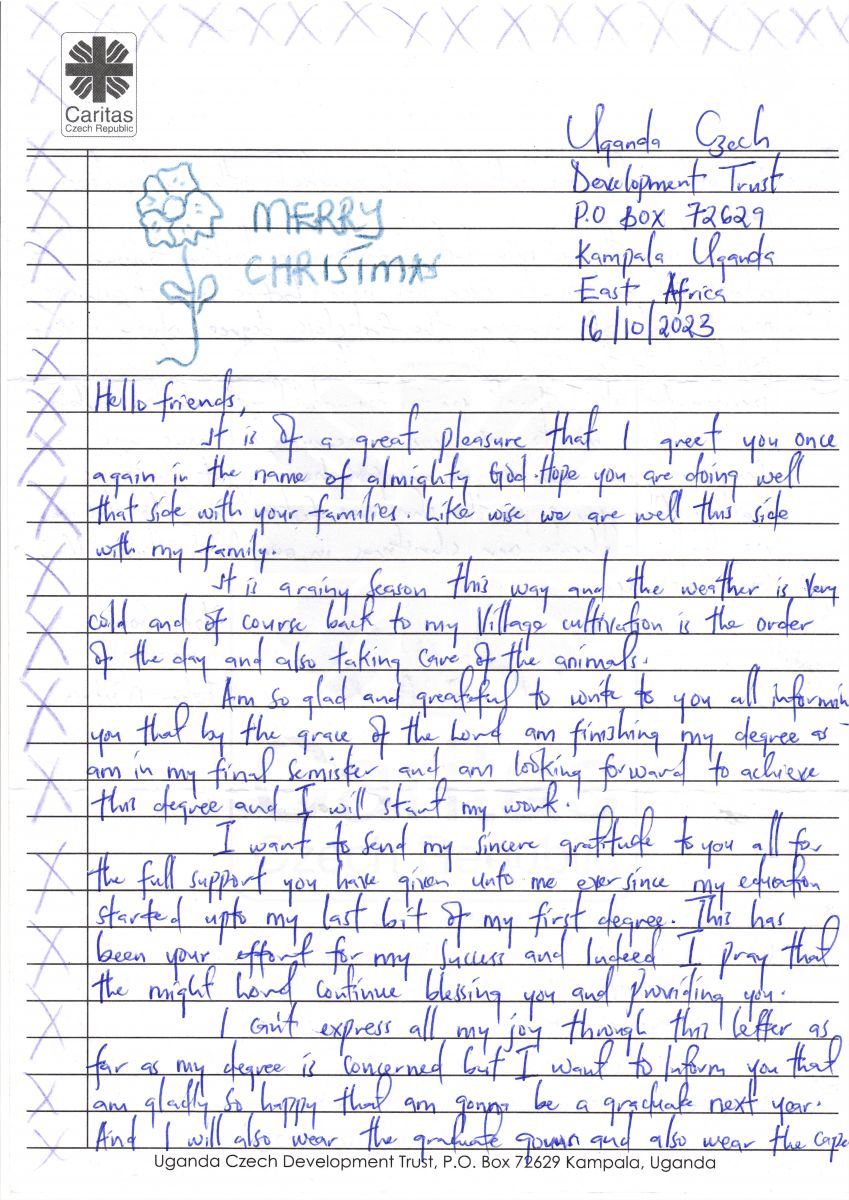 Caritas
Czech Republic
Uganda Czech
Development Trust
P.O BOX 72629
Kampala Uganda
East Africa
16/10/2023
MERRY
CHRISTMAS
Hello friends,
It is of a great pleasure that I greet you once
again in the name of almighty God. Hope you are doing well
that side with your families. Like wise we are well this side
with my family.
It is a rainy season this way and the weather is very
cold and of course back to my village cultivation is the order
of the day and also taking care of the animals.
Am so glad and greatful to write to you all informin
you that by the grace of the Lord am finishing my degree as
am in my final semister and am looking forward to achieve
this degree and I will start my work.
I want to send my sincere gratitude to you all for
the full support you have given unto me ever since my education
started upto my last bit of my first degree. This has
been your effort for my success and Indeed I pray that
the might Lord continue blessing you and providing you.
I can't express all my joy through this letter as
far as my degree is concerned but I want to Inform you that
am gladly so happy that am gonna be a graduate next year.
And I will also wear the graduate gown and also wear the cape
Uganda Czech Development Trust, P.O. Box 72629 Kampala, Uganda